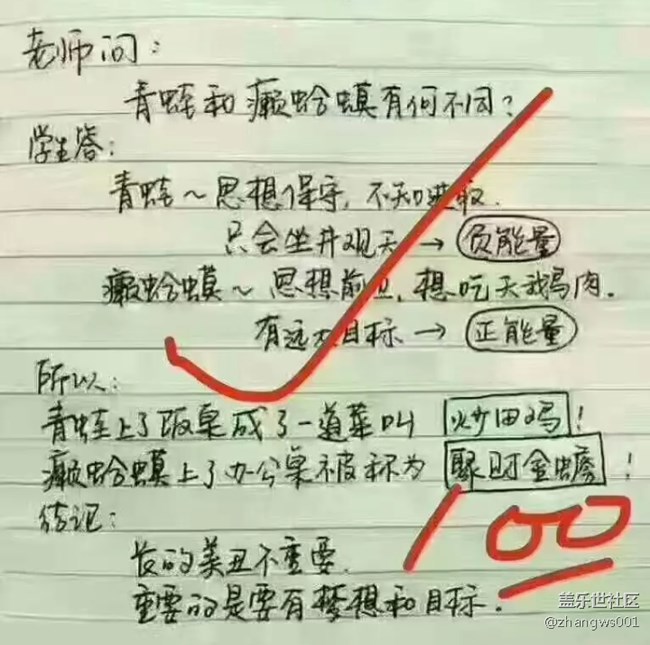 老师问：
青蛙和癞蛤蟆有何不同？
学生答：
青蛙～思想保守，不知进取．
只会坐井观天→负能量
癞蛤蟆～思想前卫，想吃天鹅肉．
有远大目标→正能量
所以：
青蛙上了饭桌成了一道菜叫炒田鸡！
癞蛤蟆上了办公桌被称为聚财金蟾！
结论：
长的美丑不重要．
重要的是要有梦想和目标．
100
盖乐世社区
@zhangws001